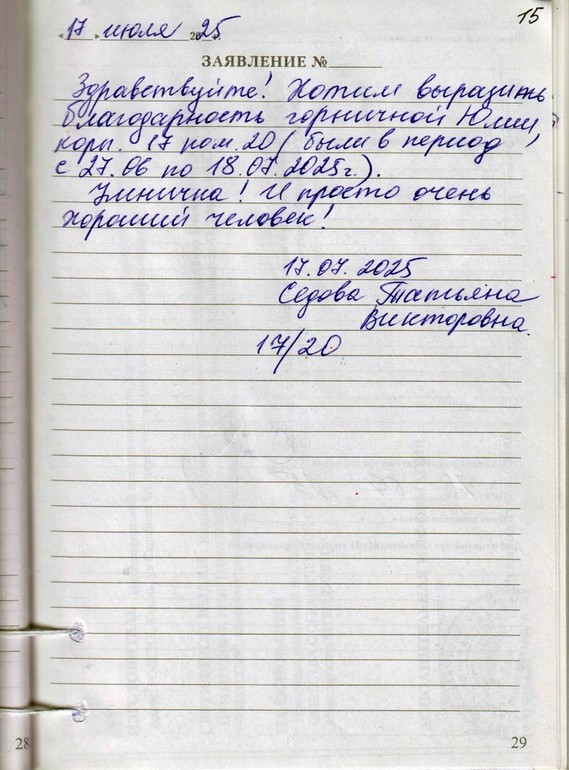 15
«17» июля 2025 г.
ЗАЯВЛЕНИЕ №
Здравствуйте! Хотим выразить
благодарность горничной Юлии,
корп. 17 ком. 20 (были в период
с 27.06 по 18.07.2025г.).
Умничка! И просто очень
хороший человек!
17.07.2025
Седова Татьяна
Викторовна
17/20
28
29